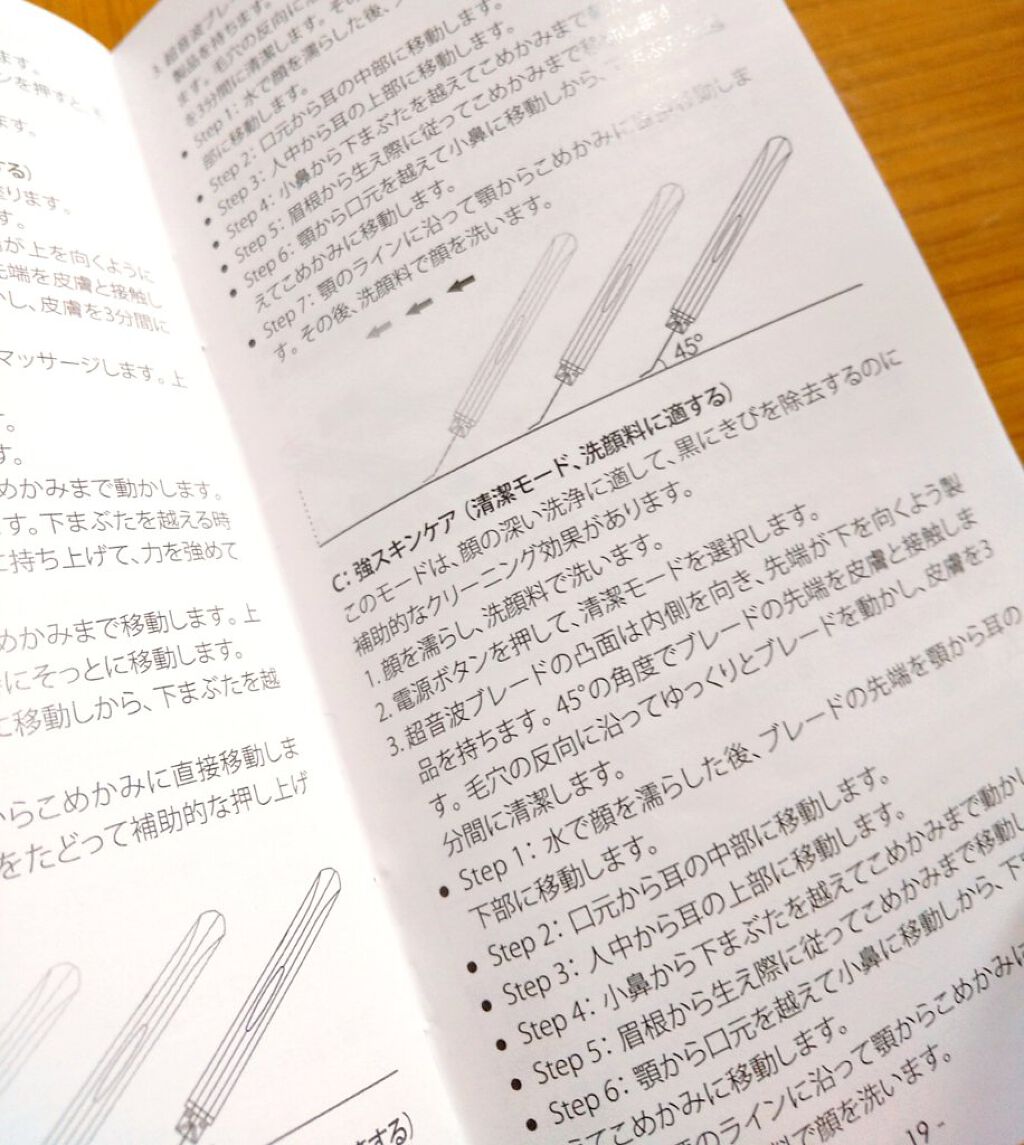 ます。
ンを押すと、
ます。
する)
塗ります。
す。
が上を向くように
先端を皮膚と接触し
かし、皮膚を3分間に
マッサージします。上
す。
めかみまで動かします。
ます。下まぶたを越える時
に持ち上げて、力を強めて
めかみまで移動します。上
にそっとに移動します。
に移動しから、下まぶたを越
からこめかみに直接移動しま
をたどって補助的な押し上げ
する)
3. 超音波ブレー
製品を持ちます。
ます。毛穴の反向に
を3分間に清潔します。
• Step 1: 水で顔を濡らした後、
部に移動します。
• Step 2: 口元から耳の中部に移動します。
• Step 3: 人中から耳の上部に移動します。
• Step 4: 小鼻から下まぶたを越えてこめかみまで
• Step 5: 眉根から生え際に従ってこめかみまで移動します。
• Step 6: 顎から口元を越えて小鼻に移動しから、下まぶた
えてこめかみに移動します。
• Step 7: 顎のラインに沿って顎からこめかみに直接移動しま
す。その後、洗顔料で顔を洗います。
45°
C: 強スキンケア (清潔モード、洗顔料に適する)
このモードは、顔の深い洗浄に適して、黒にきびを除去するのに
補助的なクリーニング効果があります。
1. 顔を濡らし、洗顔料で洗います。
2. 電源ボタンを押して、清潔モードを選択します。
3. 超音波ブレードの凸面は内側を向き、先端が下を向くよう製
品を持ちます。45°の角度でブレードの先端を皮膚と接触しま
す。毛穴の反向に沿ってゆっくりとブレードを動かし、皮膚を3
分間に清潔します。
• Step 1: 水で顔を濡らした後、ブレードの先端を顎から耳の
下部に移動します。
• Step 2: 口元から耳の中部に移動します。
• Step 3: 人中から耳の上部に移動します。
• Step 4: 小鼻から下まぶたを越えてこめかみまで動かし
• Step 5: 眉根から生え際に従ってこめかみまで移動し
• Step 6: 顎から口元を越えて小鼻に移動しから、下
てこめかみに移動します。
のラインに沿って顎からこめかみに
で顔を洗います。
19 -